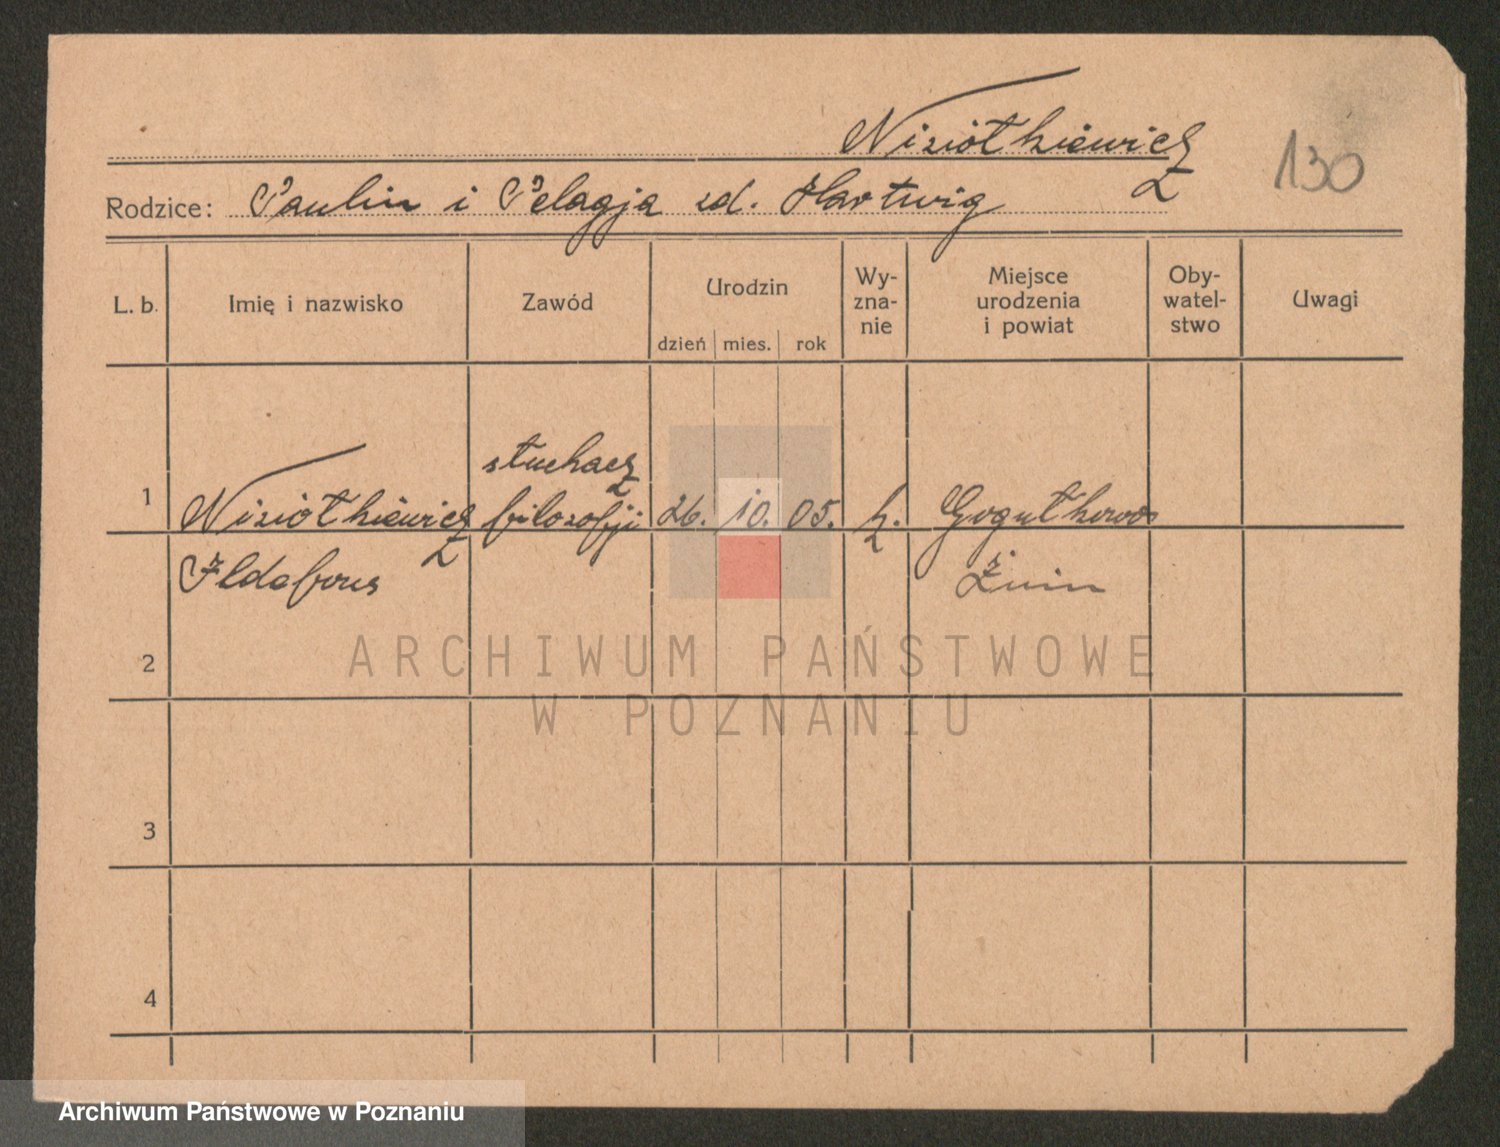 Niziołkiewicz
130
Rodzice: Paulin i Pelagja zd. Hartwig
L. b.
Imię i nazwisko
Zawód
Urodzin
dzień mies. rok
Wy-
zna-
nie
Miejsce
urodzenia
i powiat
Oby-
watel-
stwo
Uwagi
1
Niziołkiewicz
Ildefons
słuchacz
filozofji
26. 10. 05.
k.
Gogułkowo
Żnin
2
3
4
ARCHIWUM PAŃSTWOWE
W POZNANIU
Archiwum Państwowe w Poznaniu